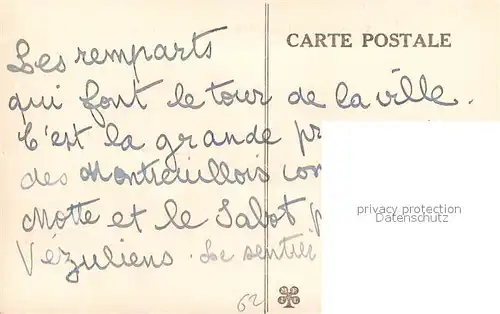 CARTE POSTALE
Les remparts
qui font le tour de la ville.
C'est la grande pr
des Montreuillois con
Motte et le Sabot p
Vézuliens. Le sentier
privacy protection
Datenschutz
62